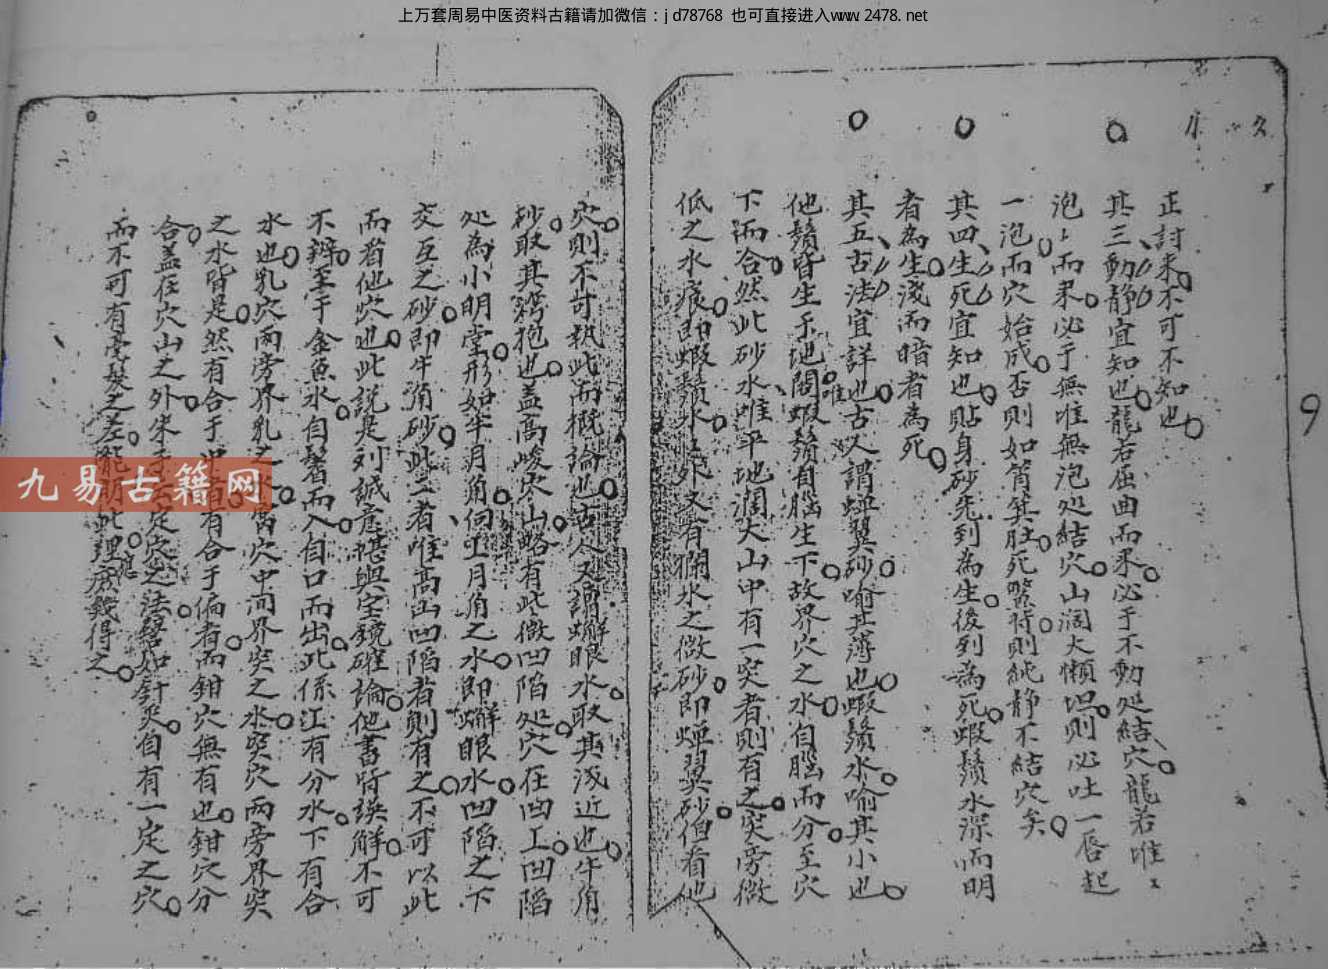 上万套周易中医资料古籍请加微信：jd78768 也可直接进入www.2478.net
正討来不可不知也
其三動静宜知也龍若屈曲而来必于不動处結穴龍若堆〻
泡〻而来必于無堆無泡处結穴山濶大懶坦則必吐一唇起
一泡而穴始成否則如筲箕肚死鱉背則純静不結穴矣
其四生死宜知也貼身砂先到為生後到為死蝦鬚水深而明
者為生淺而暗者為死
其五古法宜詳也古人謂蟬翼砂喻其薄也蝦鬚水喻其小也
他鬚皆生于地閣唯蝦鬚自腦生下故界穴之水自腦而分至穴
下而合然此砂水唯平地濶大山中有一突者則有之突旁微
低之水痕即蝦鬚水外又有攔水之微砂即蟬翼砂但看他
穴則不可執此而概論也古人又謂蠏眼水取其浅近也牛角
砂取其彎抱也蓋高峻穴山略有此微凹陷处穴在凹工凹陷
处為小明堂形如半月角伺
月角之水即蠏眼水凹陷之下
交互之砂即牛角砂此二者唯高山凹陷者則有之不可以此
而看他穴也此説是列誠意堪輿宝鏡確論他書皆誤解不可
不辯至于金魚水自鬚而入自口而出此係江有分水下有合
水也乳穴兩旁界乳之
當穴中间界突之水突穴兩旁界突
之水皆是然有合于中者有合于偏者而鉗穴無有也鉗穴分
合盖在穴山之外朱子
定穴之法譬如針灸自有一定之穴
而不可有毫髮之差能
此理庶幾得之
九易古籍网
9